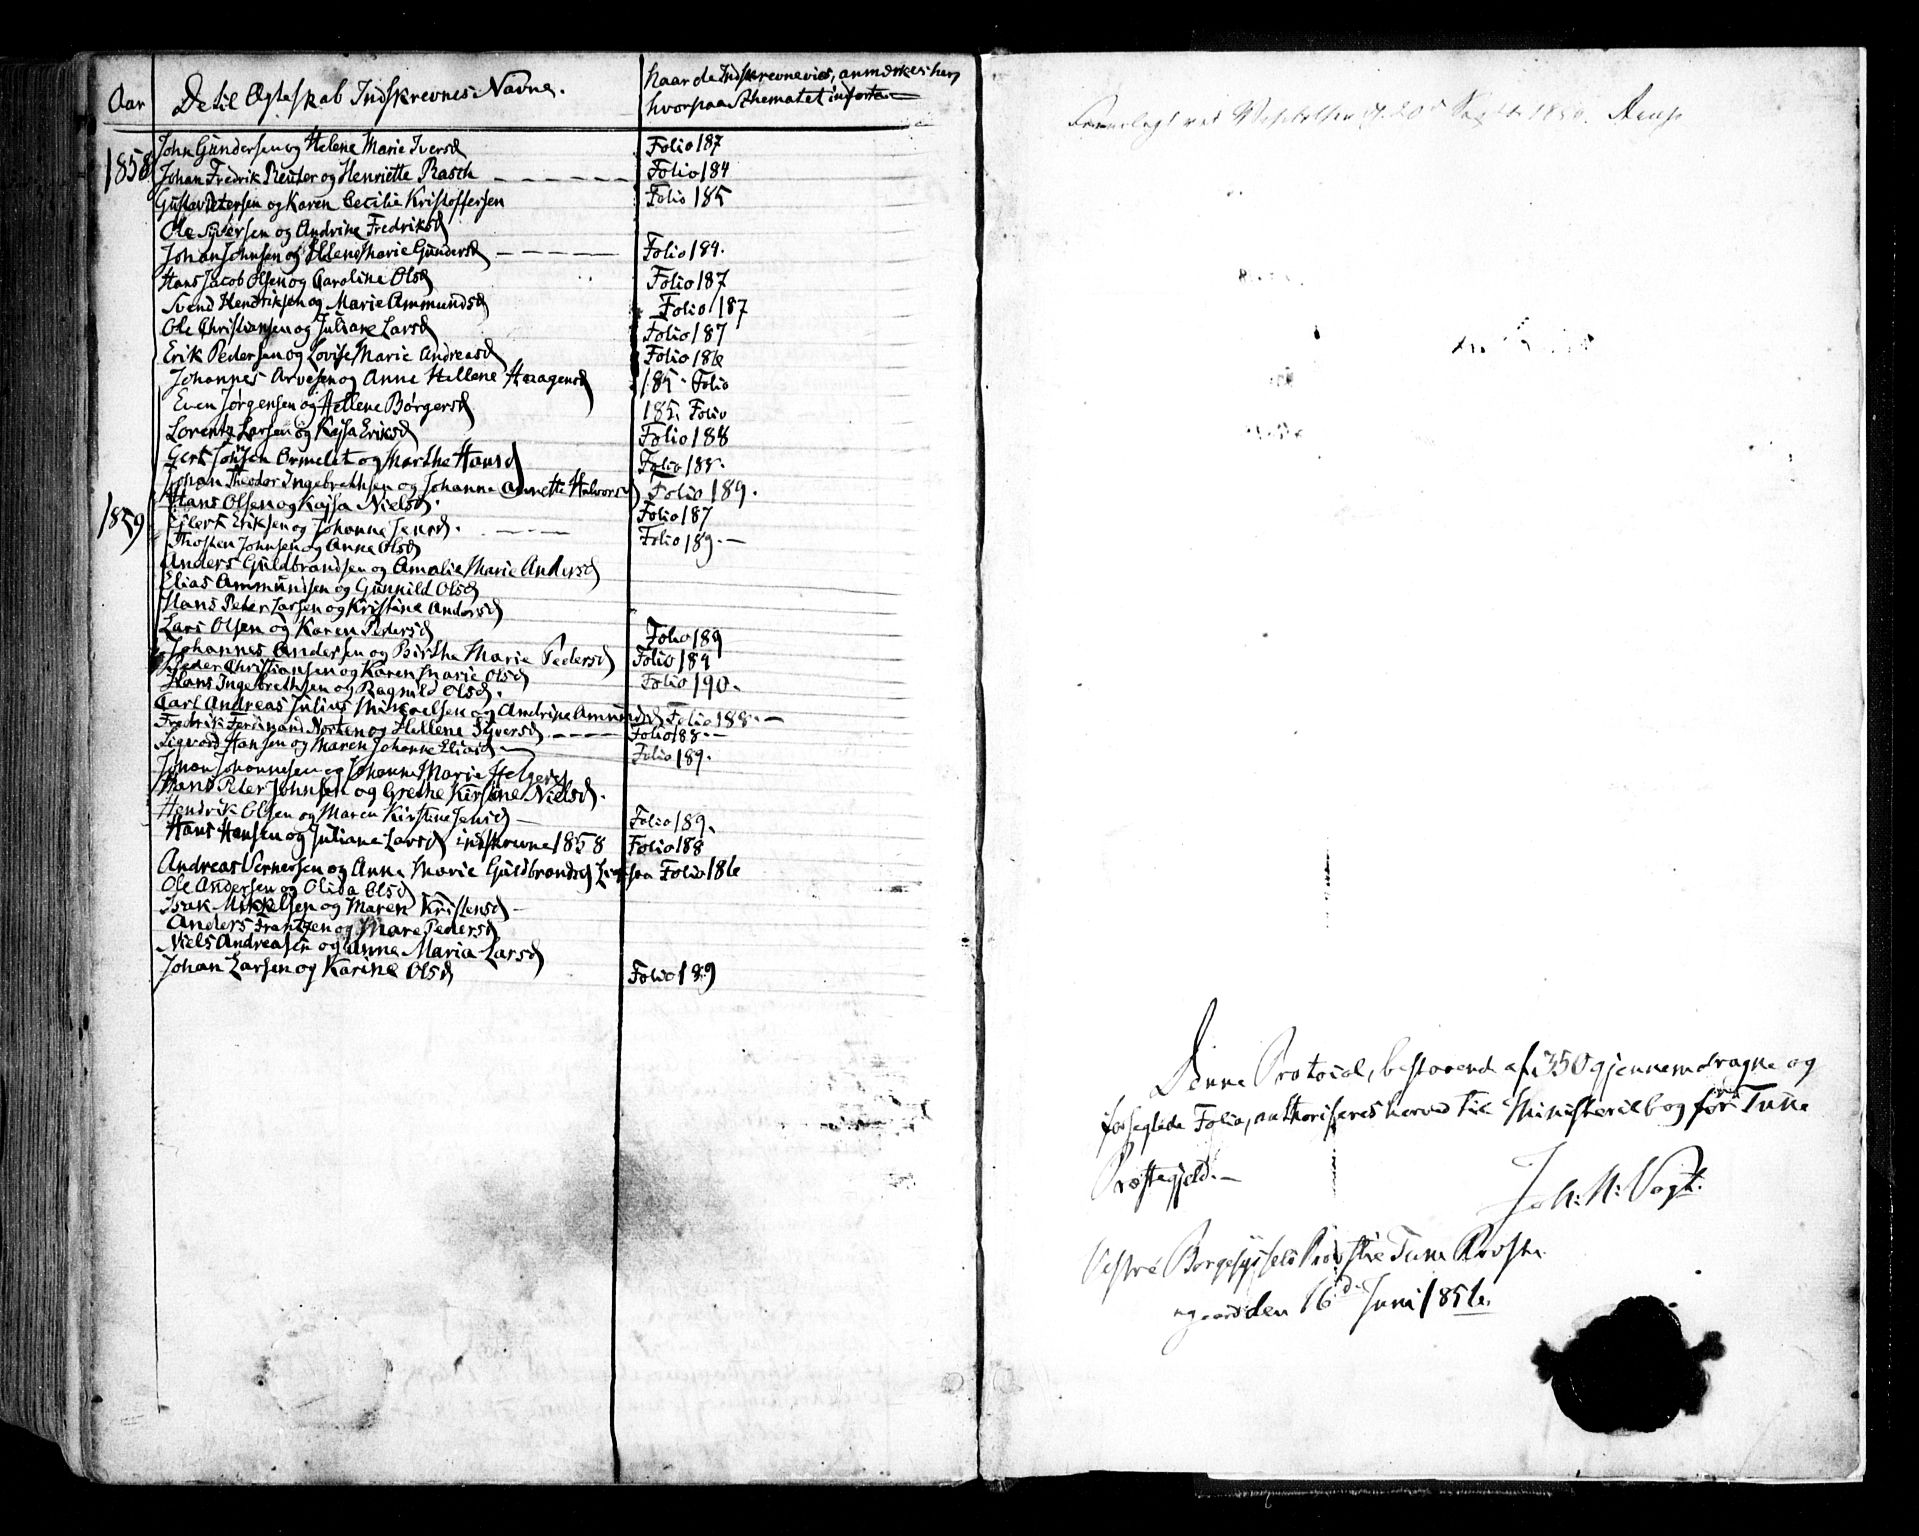 Aar
De til Ægteskab Indskrevnes Navne.
Naar de Indskrevne vies, anmærkes her,
hvorpaa Schematet
1858
John Gundersen og Helene Marie Iversd Folio 187
Johan Fredrik Reuter og Henriette Rasch Folio 184
Gustav Petersen og Karen Cecilie Kristoffersen Folio 185
Ole Syversen og Andrine Fredriksd
Johan Johnsen og Helene Marie Gundersd Folio 184.
Hans Jacob Olsen og Caroline Olsd Folio 187
Svend Hendriksen og Marie Ammundsd Folio 187
Ole Christiansen og Juliane Larsd Folio 187
Erik Pedersen og Lovise Marie Andreasd Folio 186
Johannes Arvesen og Anne Hellene Haagensd 185 Folio
Even Jørgensen og Hellene Børgersd 185. Folio
Lorentz Larsen og Kajsa Eriksd Folio 188
Gert Jonsen Ormelet og Marthe Hansd Folio 188.
Johan Theodor Ingebrethsen og Johanne Annette Halvorsd Folio 189.
1859
Hans Olsen og Kajsa Nielsd. Folio 187
Ejlert Eriksen og Johanne Jensd. Folio 189.
Thosten Johnsen og Anne Olsd
Anders Guldbrandsen og Amalie Marie Andersd
Elias Ammundsen og Gunnild Olsd
Hans Peter Larsen og Kristine Andersd
Lars Olsen og Karen Pedersd Folio 189
Johannes Andersen og Birthe Marie Pedersd Folio 189
Peder Christiansen og Karen Marie Olsd Folio 190.
Hans Ingebrethsen og Ragnild Olsd.
Carl Andreas Julius Mikaelsen og Andrine Amundsd Folio 188.
Fredrik Ferdinand Norten og Hellene Syversd Folio 188
Sigvard Hansen og Maren Johanne Eliasd Folio 189.
Johan Johannesen og Johanne Marie Helgesd
Hans Peter Johnsen og Grethe Kirstine Nielsd.
Hendrik Olsen og Maren Kirstine Jensd Folio 189.
Hans Hansen og Juliane Larsd indskrevne 1858 Folio 188
Andreas Vernersen og Anne Marie Guldbrandsd Folio 186
Ole Andersen og Olida Olsd
Isak Mikkelsen og Maren Kristensd
Anders Frantzen og Mare Pedersd
Niels Andreasen og Anne Maria Larsd
Johan Larsen og Karine Olsd Folio 189
Denne Protocol, bestaaende af 350 gjennemdragne og
forseglede Folio, authoriseres herved til Ministerialbog for Tune
Præstegjeld.
Joh. N. Vogt.
Vestre Borgesyssels Provstie Tune Præste-
gaard den 16de Juni 1856.